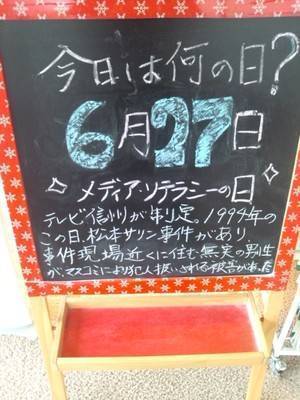 今日は何の日?
6月27日
メディア・リテラシーの日
テレビ信州が制定。1994年の
この日、松本サリン事件があり、
事件現場近くに住む無実の男性
が、マスコミにより犯人扱いされる被害があった